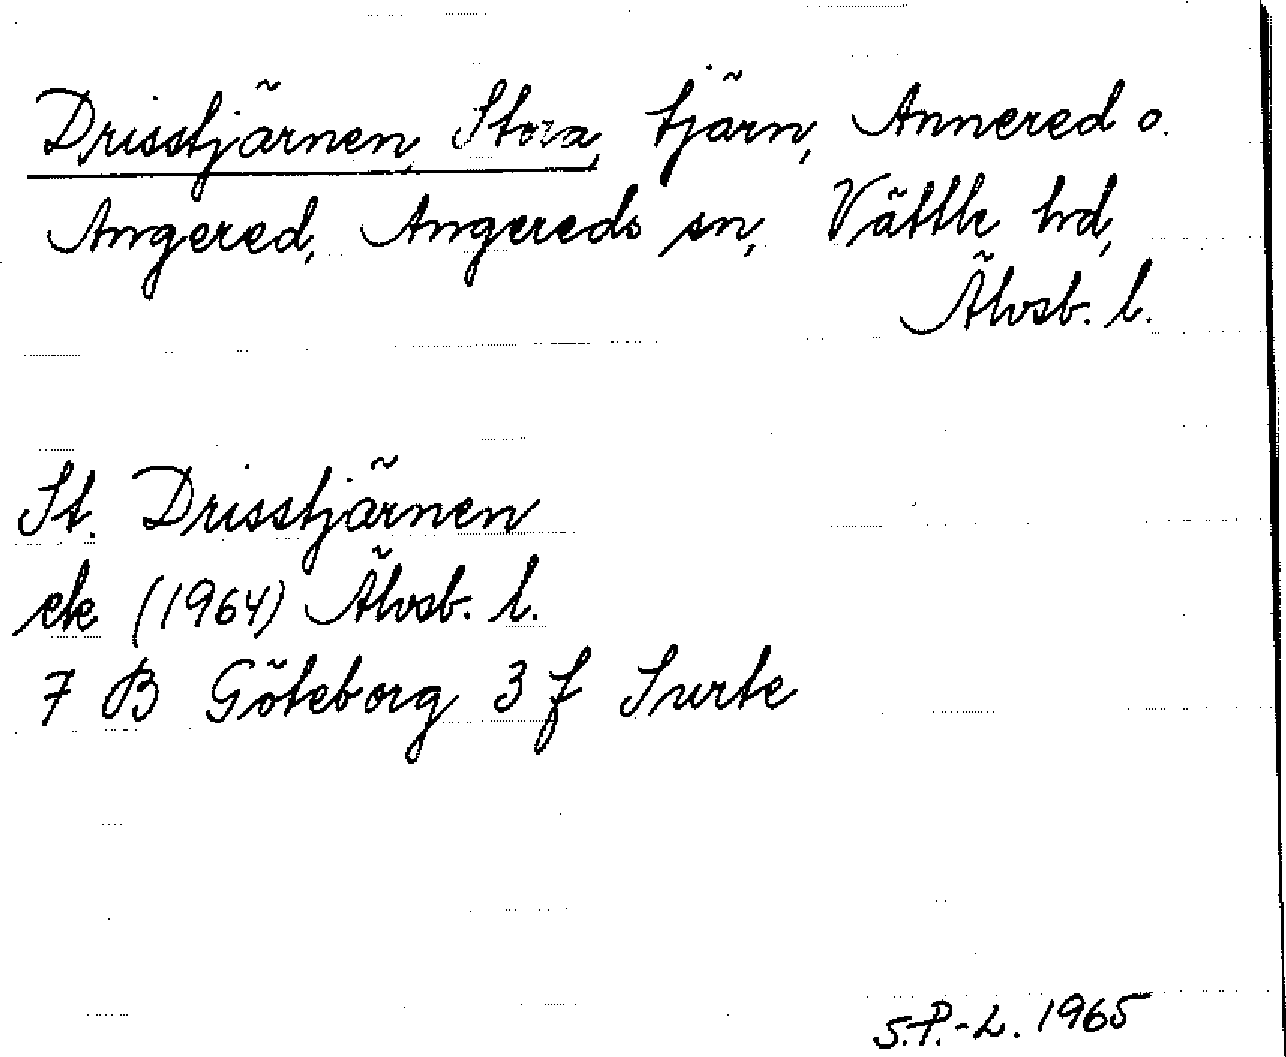 Drisstjärnen, Stora, tjärn, Annered o.
Angered, Angereds sn, Vättle hd,
Älvsb. l.
St. Drisstjärnen
ek (1964) Älvsb. l.
7 B Göteborg 3 f Surte
S.P.-L. 1965